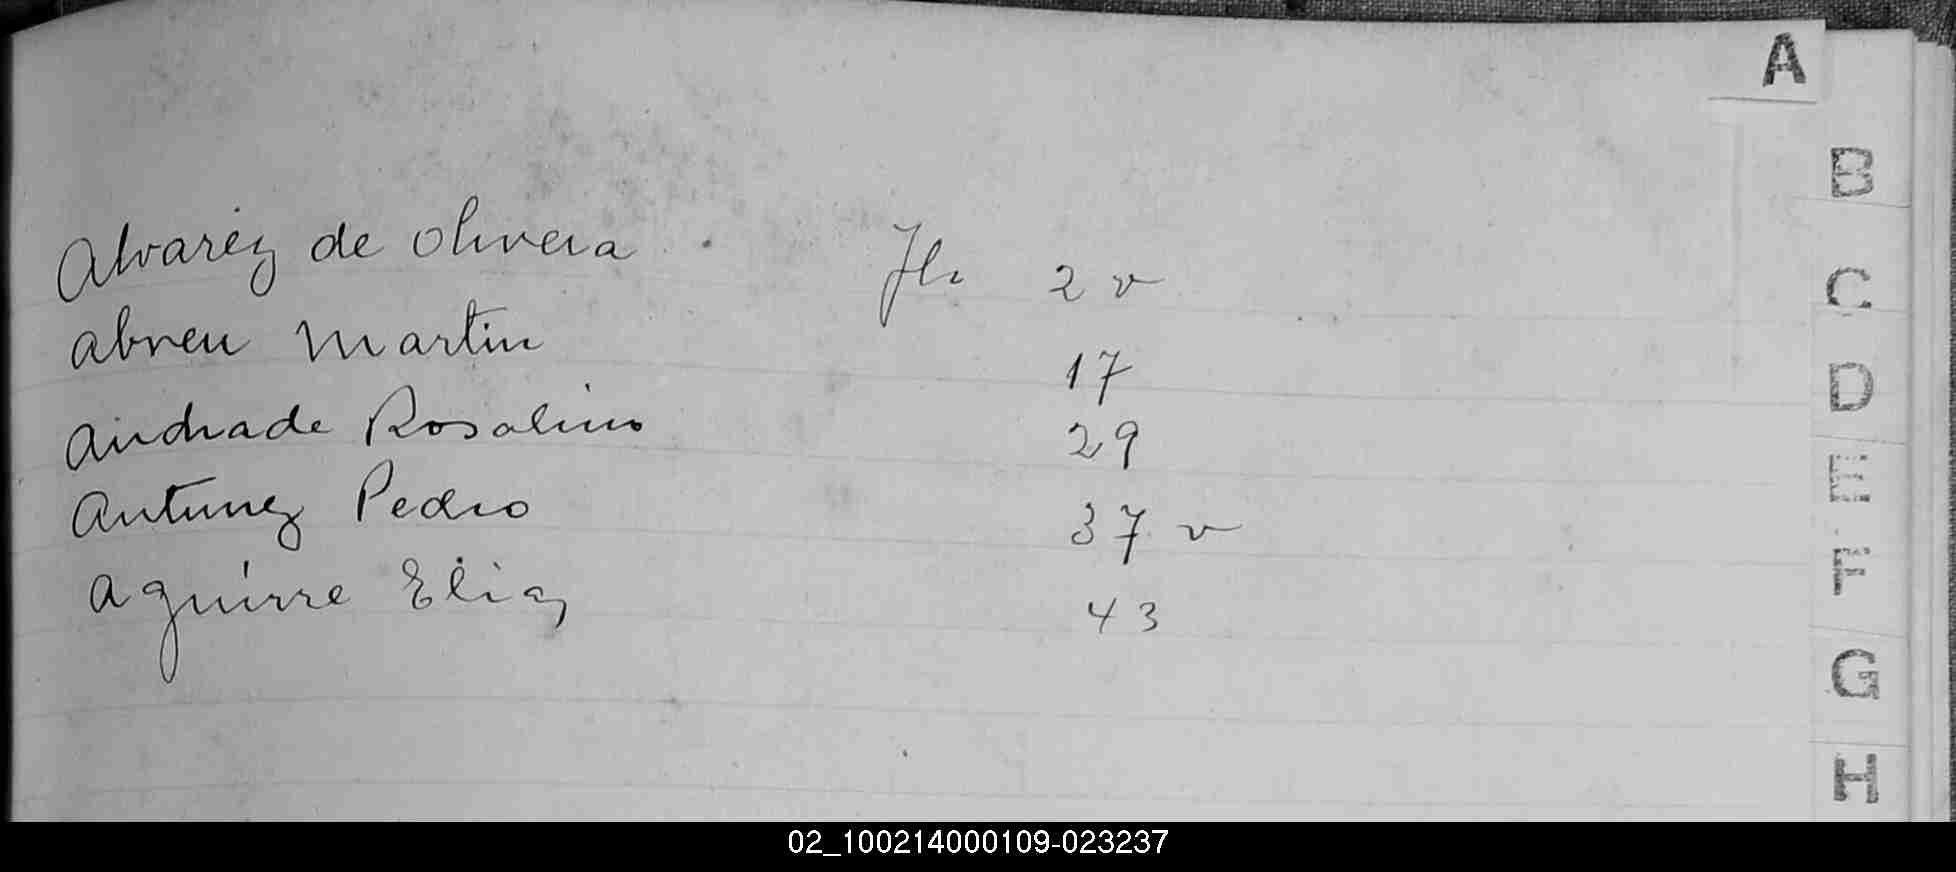 A
B
C
D
E
F
G
H
Alvarez de Olivera Fls 2 v
Abreu Martin 17
Andrade Rosalino 29
Antunez Pedro 37 v
Aguirre Elias 43
02_100214000109-023237